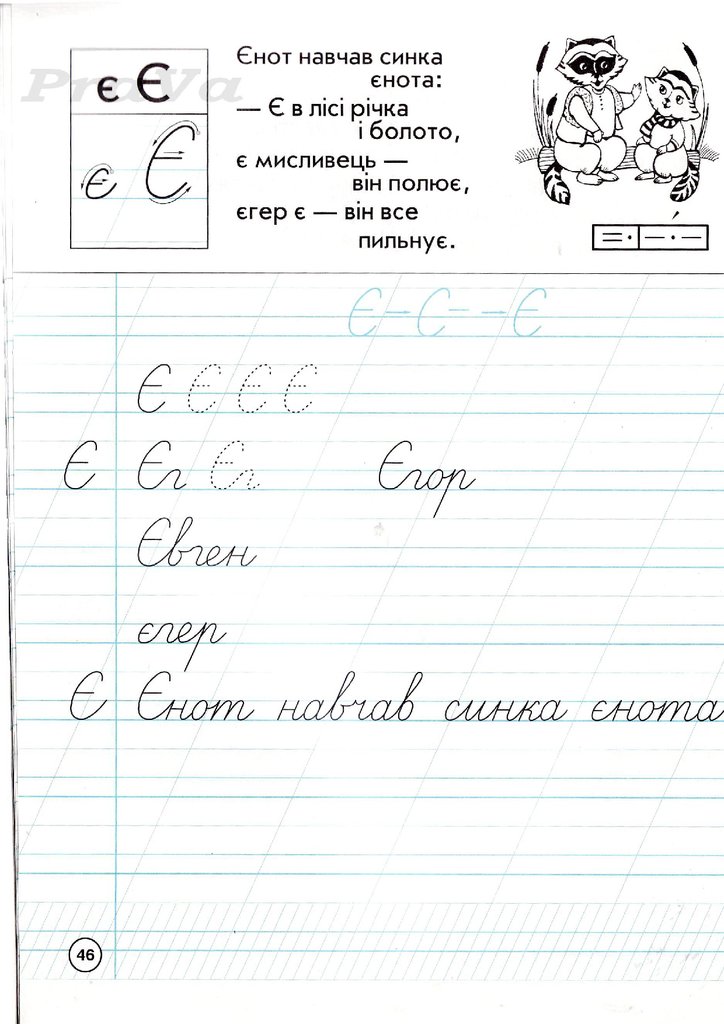 PraVa
є Є
є Є
Єнот навчав синка
єнота:
— Є в лісі річка
і болото,
є мисливець —
він полює,
єгер є — він все
пильнує.
Є Є Є
Є Є Є Є
Є Єг Єг Єгор
Євген
єгер
Є Єнот навчав синка єнота
46